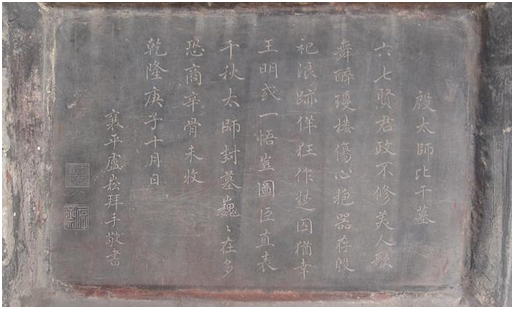 殷太師比干墓
六七賢君政不修美人歌
舞醉瓊樓傷心抱器存殷
祀浪跡佯狂作楚囚猶幸
王明或一悟豈圖臣直表
千秋太師封墓巍〻在多
恐商辛骨未收
乾隆庚子十月日
襄平盧崧拜手敬書